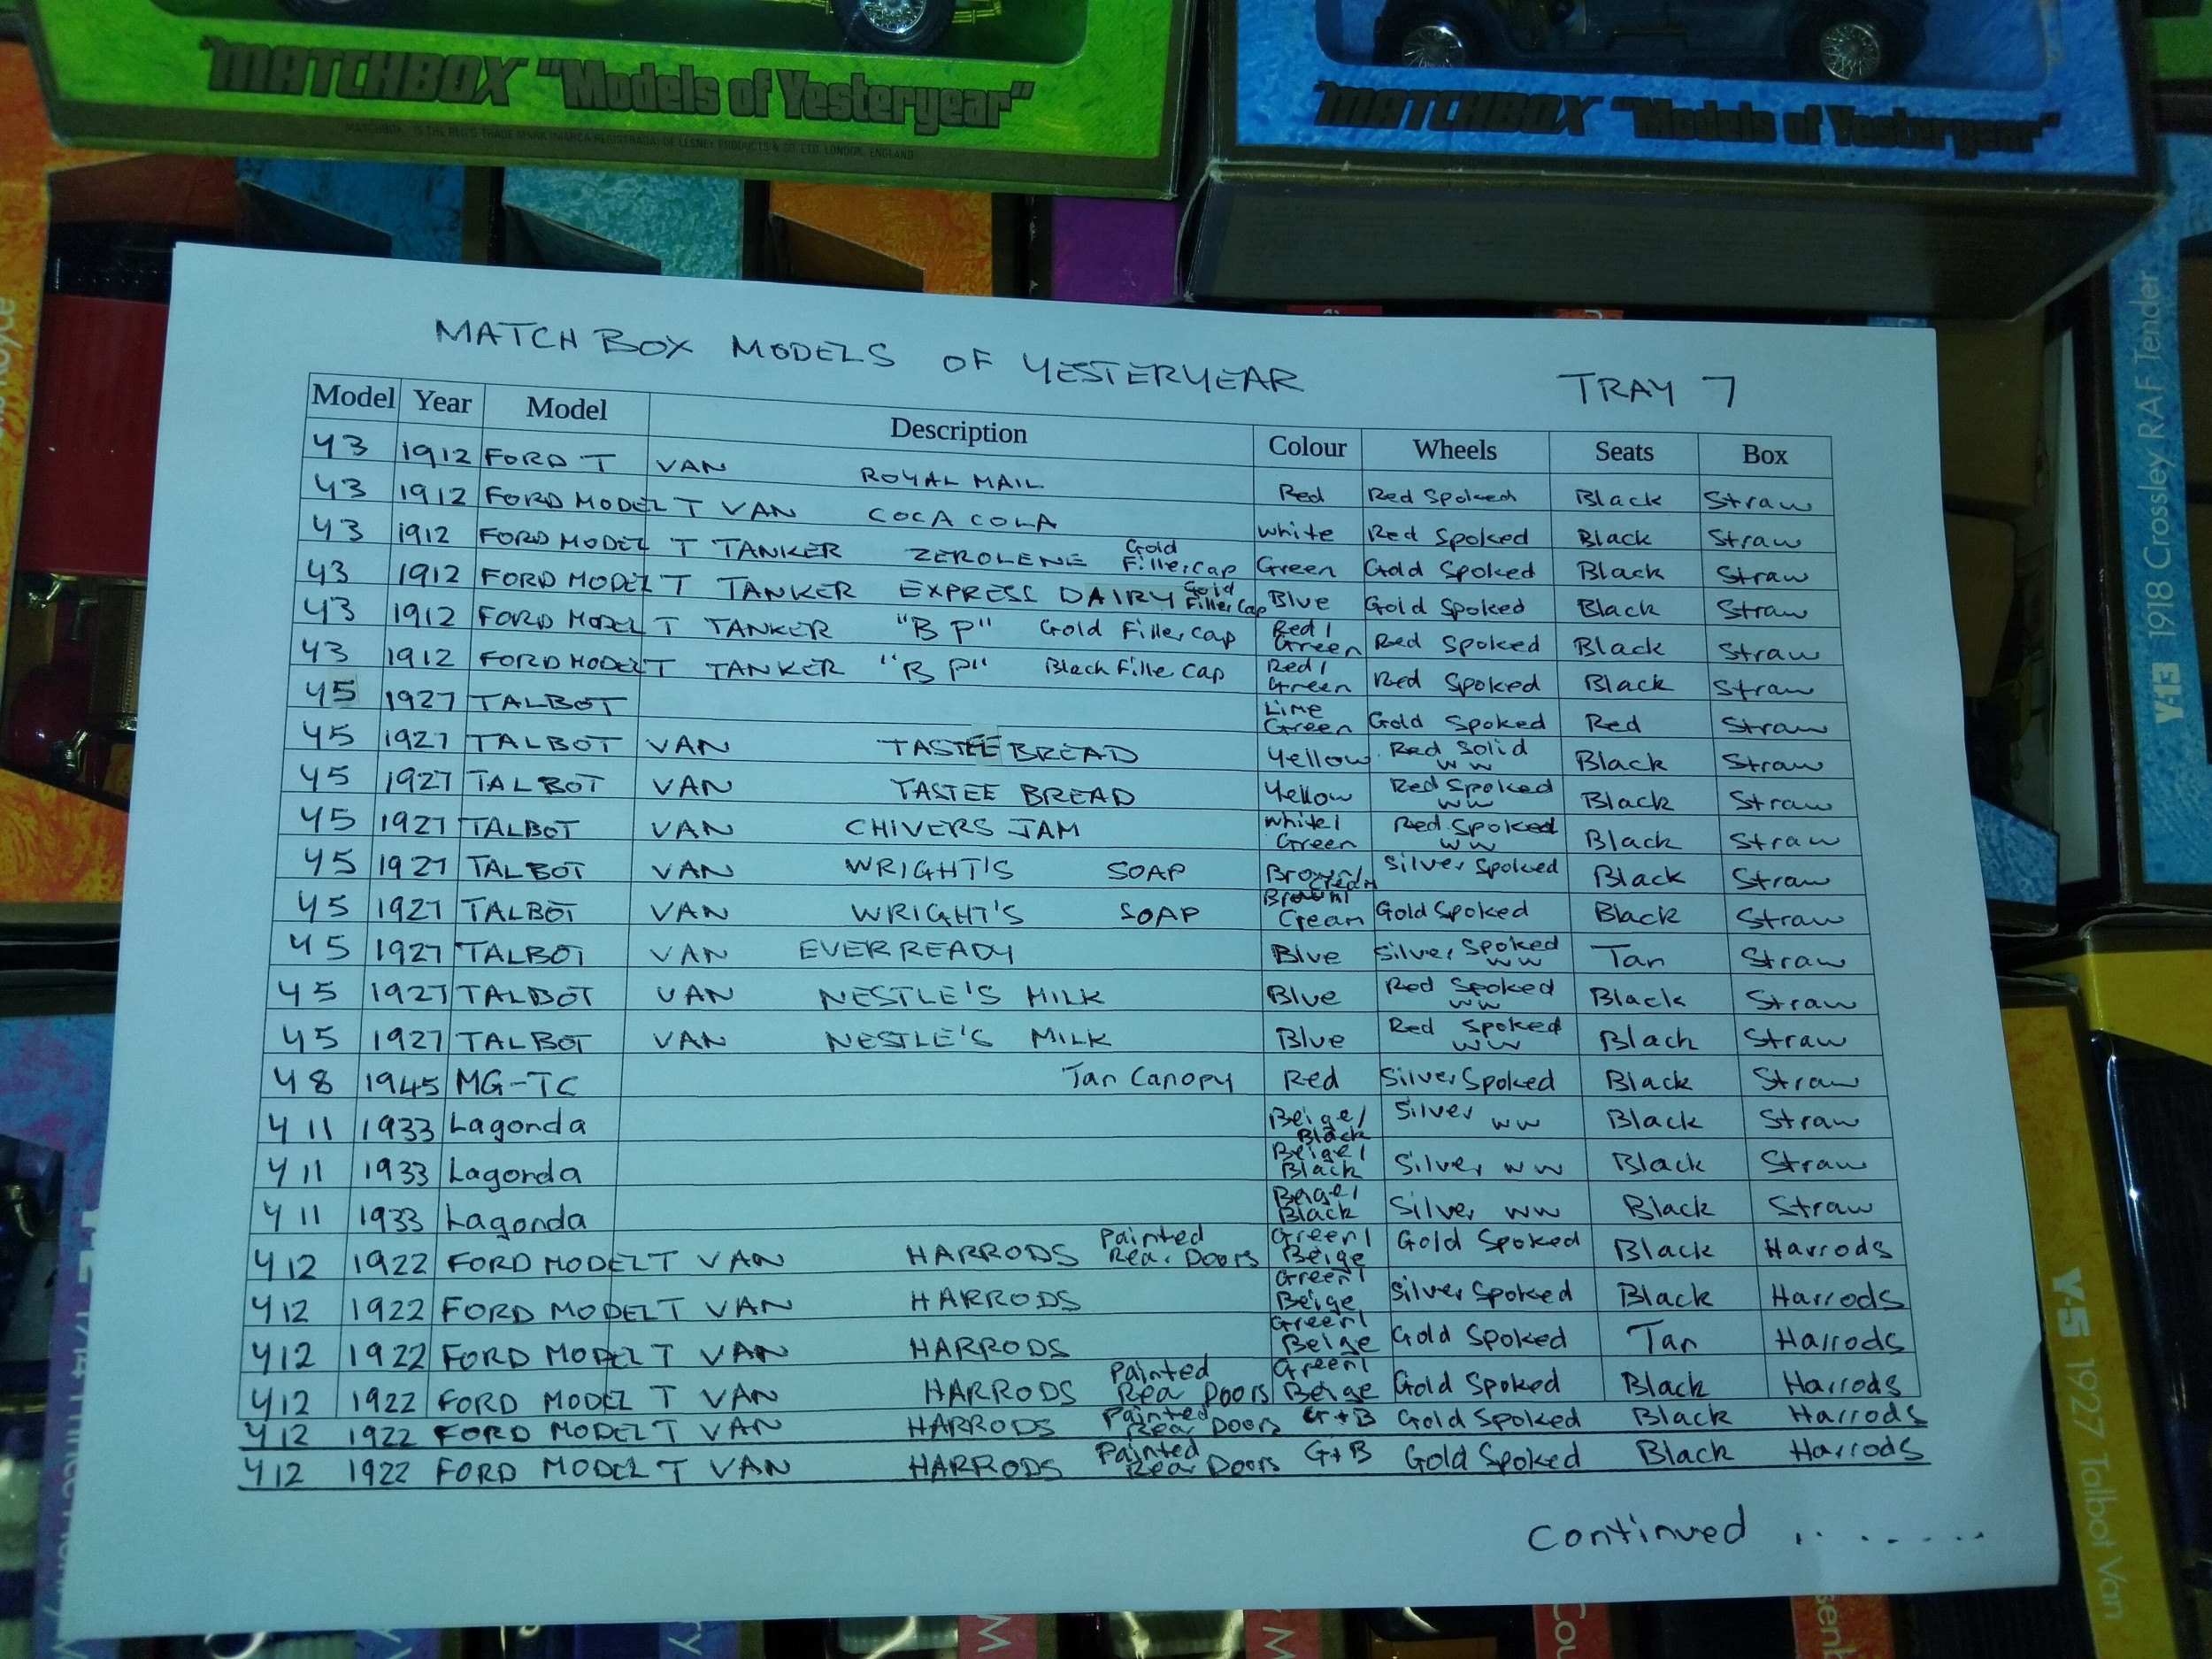 MATCHBOX "Models of Yesteryear"
MATCHBOX "Models of Yesteryear"
MATCHBOX IS THE REG'D TRADE MARK (MARCA REGISTRADA) OF LESNEY PRODUCTS & CO. LTD. LONDON, ENGLAND
Y-13 1918 Crossley R.A.F. Tender
MATCH BOX MODELS OF YESTERYEAR TRAY 7
Model Year Model Description Colour Wheels Seats Box
Y3 1912 FORD T VAN ROYAL MAIL Red Red Spoked Black Straw
Y3 1912 FORD MODEL T VAN COCA COLA White Red Spoked Black Straw
Y3 1912 FORD MODEL T TANKER ZEROLENE Gold Filler Cap Green Gold Spoked Black Straw
Y3 1912 FORD MODEL T TANKER EXPRESS DAIRY Gold Filler Cap Blue Gold Spoked Black Straw
Y3 1912 FORD MODEL T TANKER "BP" Gold Filler Cap Red/Green Red Spoked Black Straw
Y3 1912 FORD MODEL T TANKER "BP" Black Filler Cap Red/Green Red Spoked Black Straw
Y5 1927 TALBOT Lime Green Gold Spoked Red Straw
Y5 1927 TALBOT VAN TASTEE BREAD Yellow Red Solid WW Black Straw
Y5 1927 TALBOT VAN TASTEE BREAD Yellow Red Spoked WW Black Straw
Y5 1927 TALBOT VAN CHIVERS JAM White/Green Red Spoked WW Black Straw
Y5 1927 TALBOT VAN WRIGHT'S SOAP Brown/Cream Silver Spoked Black Straw
Y5 1927 TALBOT VAN WRIGHT'S SOAP Brown/Cream Gold Spoked Black Straw
Y5 1927 TALBOT VAN EVER READY Blue Silver Spoked WW Tan Straw
Y5 1927 TALBOT VAN NESTLE'S MILK Blue Red Spoked WW Black Straw
Y5 1927 TALBOT VAN NESTLE'S MILK Blue Red Spoked WW Black Straw
Y8 1945 MG-TC Tan Canopy Red Silver Spoked Black Straw
Y11 1933 Lagonda Beige/Black Silver WW Black Straw
Y11 1933 Lagonda Beige/Black Silver WW Black Straw
Y11 1933 Lagonda Beige/Black Silver WW Black Straw
Y12 1922 FORD MODEL T VAN HARRODS Painted Rear Doors Green/Beige Gold Spoked Black Harrods
Y12 1922 FORD MODEL T VAN HARRODS Green/Beige Silver Spoked Black Harrods
Y12 1922 FORD MODEL T VAN HARRODS Green/Beige Gold Spoked Tan Harrods
Y12 1922 FORD MODEL T VAN HARRODS Painted Rear Doors Green/Beige Gold Spoked Black Harrods
Y12 1922 FORD MODEL T VAN HARRODS Painted Rear Doors G+B Gold Spoked Black Harrods
Y12 1922 FORD MODEL T VAN HARRODS Painted Rear Doors G+B Gold Spoked Black Harrods
Continued .......
Y-5 1927 Talbot Van